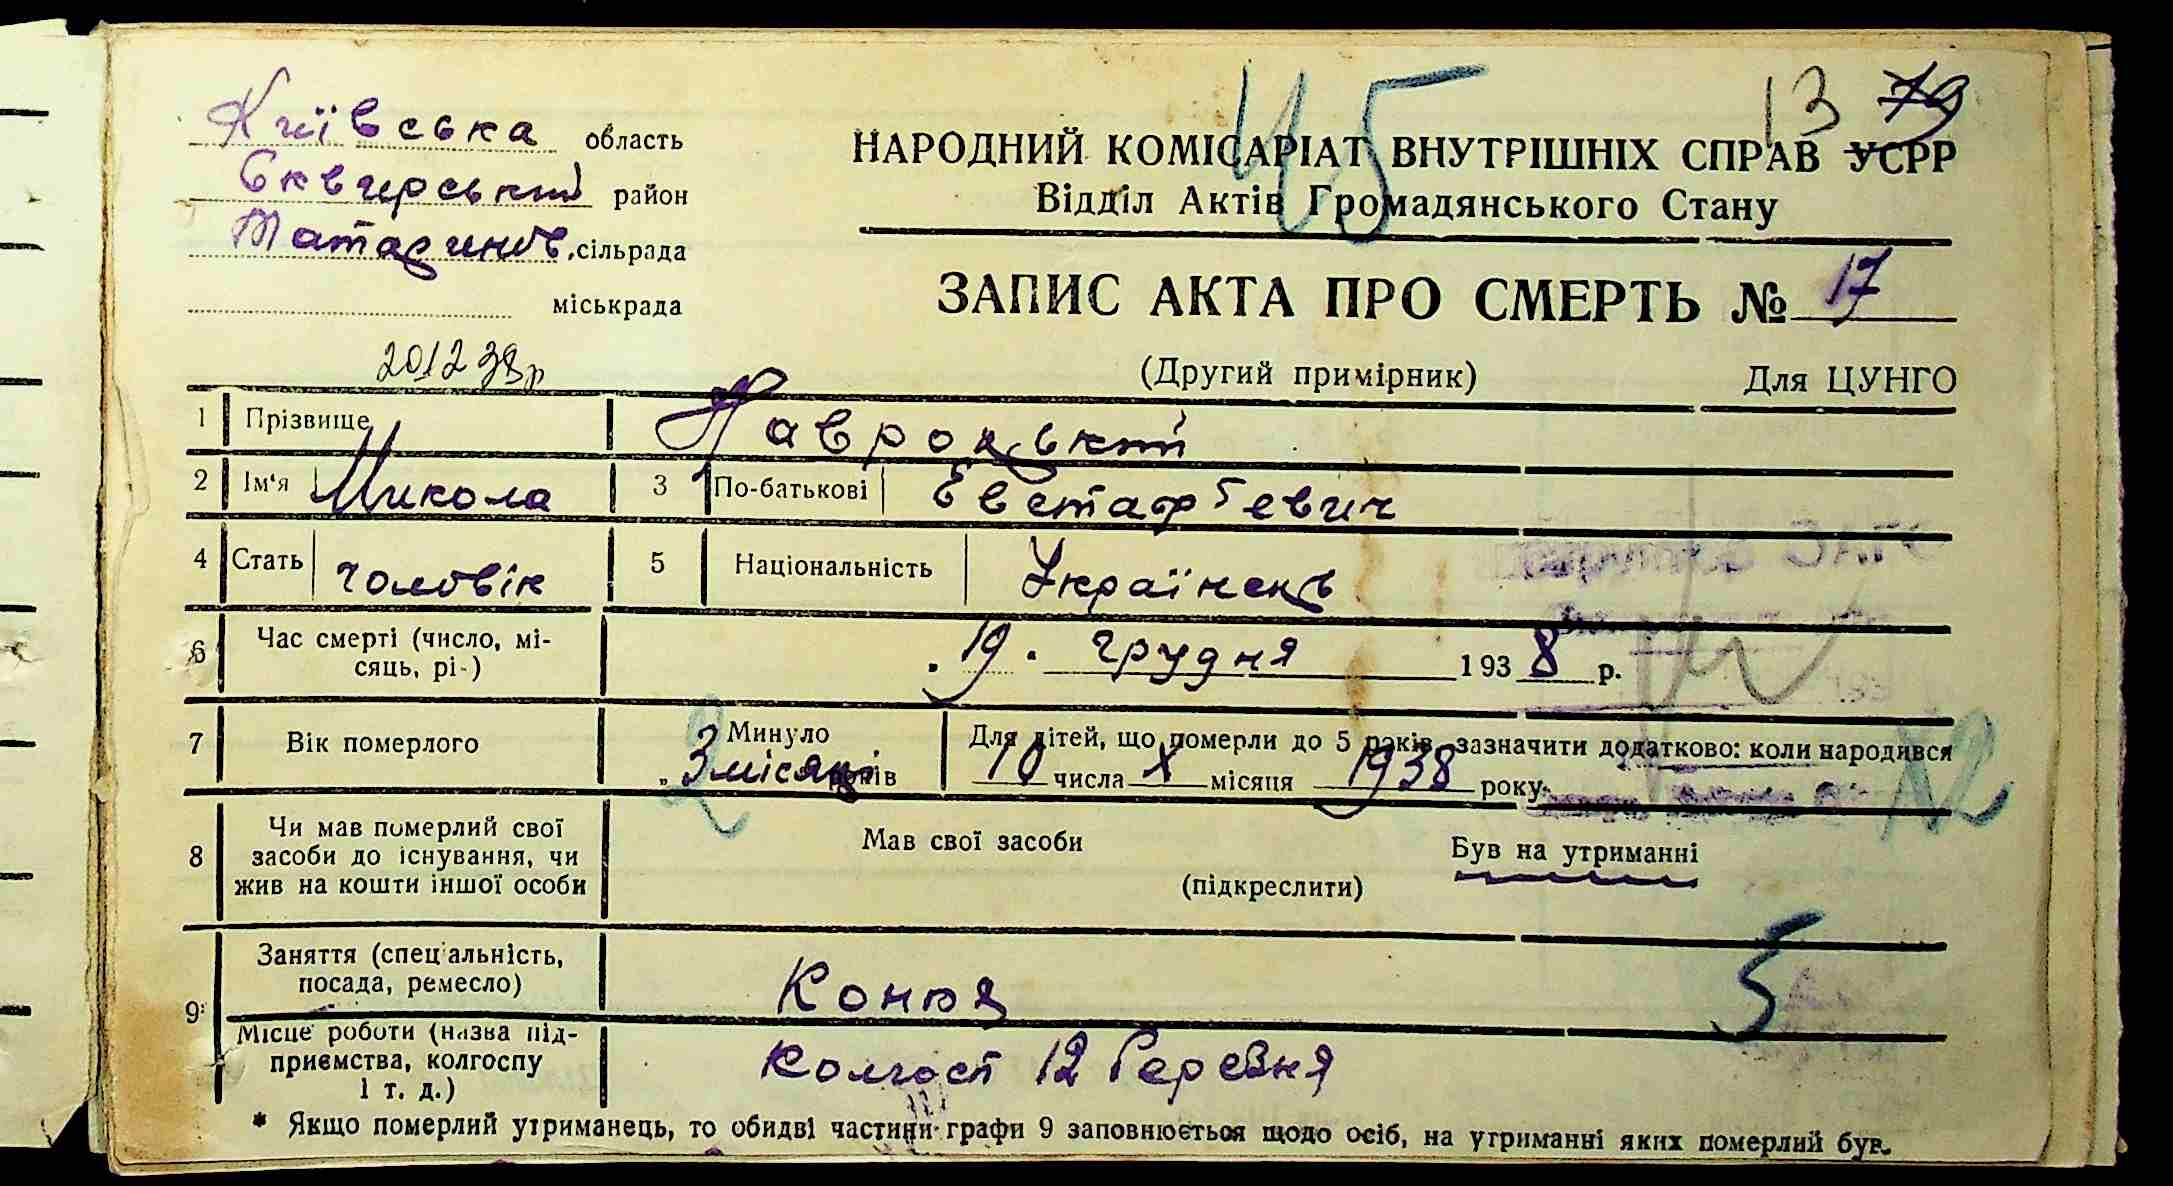 45 13 79
Київська область
Сквирський район
Татаринов. сільрада
міськрада
НАРОДНИЙ КОМІСАРІАТ ВНУТРІШНІХ СПРАВ УСРР
Відділ Актів Громадянського Стану
ЗАПИС АКТА ПРО СМЕРТЬ № 17
(Другий примірник) Для ЦУНГО
20 12 38р
1 Прізвище Навроцький
2 Ім'я Микола 3 По-батькові Евстаф'евич
4 Стать чоловік 5 Національність Українець
6 Час смерті (число, мі-
сяць, рі-) 19 грудня 1938 р.
7 Вік померлого Минуло
3 місяц. років
Для дітей, що померли до 5 років, зазначити додатково: коли народився
10 числа X місяця 1938 року
2 12
8 Чи мав померлий свої
засоби до існування, чи
жив на кошти іншої особи
Мав свої засоби Був на утриманні
(підкреслити)
9 Заняття (спеціальність,
посада, ремесло) 5
Місце роботи (назва під-
приємства, колгоспу
і т. д.) Колгосп 12 Березня
* Якщо померлий утриманець, то обидві частини графи 9 заповнюється щодо осіб, на утриманні яких померлий був.